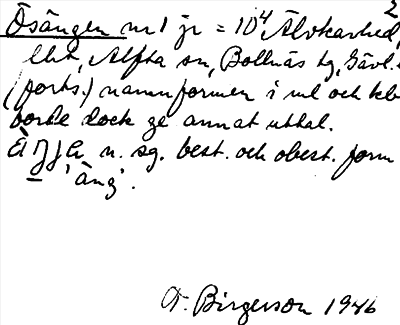 2
Ösängen nr 1 jr = 10⁴ Älvkarhed,
Alfta sn, Bollnäs tg, Gävl.
(forts.) namnformen i ml och
borde dock ge annat uttal.
n. sg. best. och obest. form
= 'äng'.
Birgerson 1946